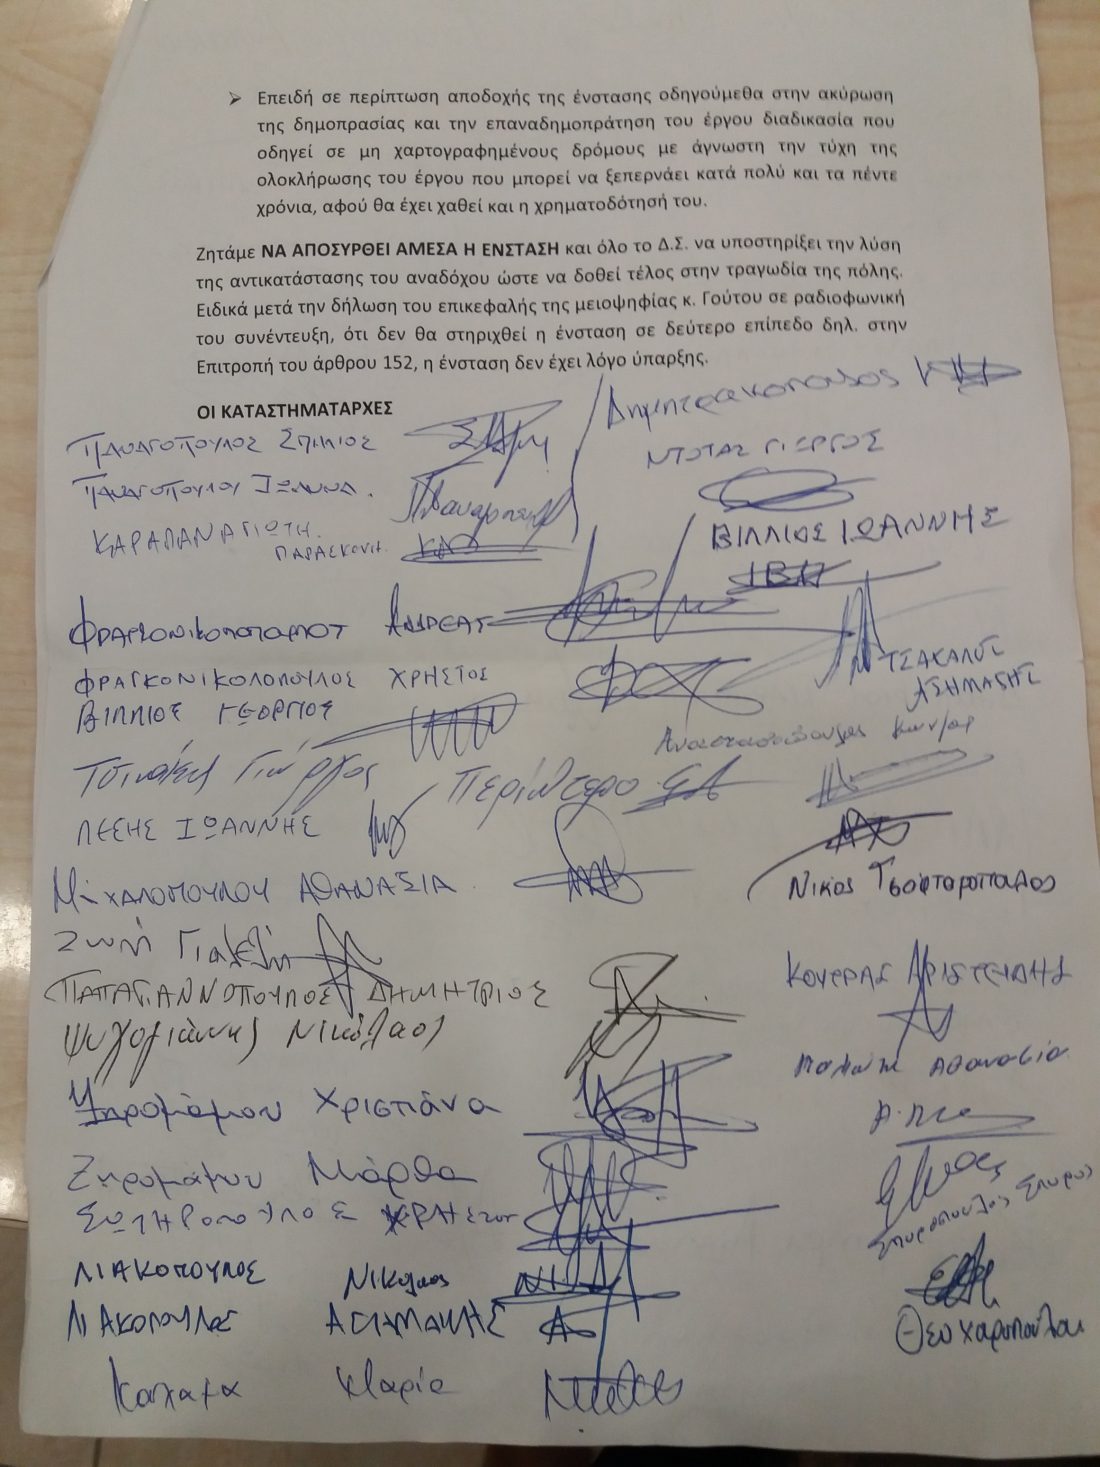 ➢ Επειδή σε περίπτωση αποδοχής της ένστασης οδηγούμεθα στην ακύρωση
της δημοπρασίας και την επαναδημοπράτηση του έργου διαδικασία που
οδηγεί σε μη χαρτογραφημένους δρόμους με άγνωστη την τύχη της
ολοκλήρωσης του έργου που μπορεί να ξεπερνάει κατά πολύ και τα πέντε
χρόνια, αφού θα έχει χαθεί και η χρηματοδότησή του.
Ζητάμε ΝΑ ΑΠΟΣΥΡΘΕΙ ΑΜΕΣΑ Η ΕΝΣΤΑΣΗ και όλο το Δ.Σ. να υποστηρίξει την λύση
της αντικατάστασης του αναδόχου ώστε να δοθεί τέλος στην τραγωδία της πόλης.
Ειδικά μετά την δήλωση του επικεφαλής της μειοψηφίας κ. Γούτου σε ραδιοφωνική
του συνέντευξη, ότι δεν θα στηριχθεί η ένσταση σε δεύτερο επίπεδο δηλ. στην
Επιτροπή του άρθρου 152, η ένσταση δεν έχει λόγο ύπαρξης.
ΟΙ ΚΑΤΑΣΤΗΜΑΤΑΡΧΕΣ
Δημητρακοπουλος
ΠΑΝΑΓΟΠΟΥΛΟΣ ΣΠΗΛΙΟΣ
ΝΤΟΤΑΣ ΓΙΩΡΓΟΣ
ΠΑΝΑΓΟΠΟΥΛΟΥ ΙΩΑΝΝΑ
ΚΑΡΑΠΑΝΑΓΙΩΤΗ
ΠΑΡΑΣΚΟΥΗ
ΒΙΛΛΙΟΣ ΙΩΑΝΝΗΣ
ΑΝΔΡΕΑΣ
ΦΡΑΓΚΟΝΙΚΟΛΟΠΟΥΛΟΣ ΧΡΗΣΤΟΣ
ΤΣΑΚΑΛΟΣ
ΒΙΛΛΙΟΣ ΓΕΩΡΓΙΟΣ
Γιώργος Περίπτερο
ΛΕΣΗΣ ΙΩΑΝΝΗΣ
ΜΙΧΑΛΟΠΟΥΛΟΥ ΑΘΑΝΑΣΙΑ
Νίκος
Ζωή Γιαλελή
ΠΑΠΑΓΙΑΝΝΟΠΟΥΛΟΣ ΔΗΜΗΤΡΙΟΣ
ΚΟΥΕΡΑΣ ΑΡΙΣΤΕΙΔΗΣ
Ψυχογιάννης Νικόλαος
Αθανασία
Ξηρομάμου Χριστιάνα
Ξηρομάμου Μάρθα
ΣΩΤΗΡΟΠΟΥΛΟΣ
Σπυρόπουλος Σπύρος
ΛΙΑΚΟΠΟΥΛΟΣ Νικόλαος
ΛΙΑΚΟΠΟΥΛΟΣ ΑΣΗΜΑΚΗΣ
Θεοχαροπούλου
Μαρία